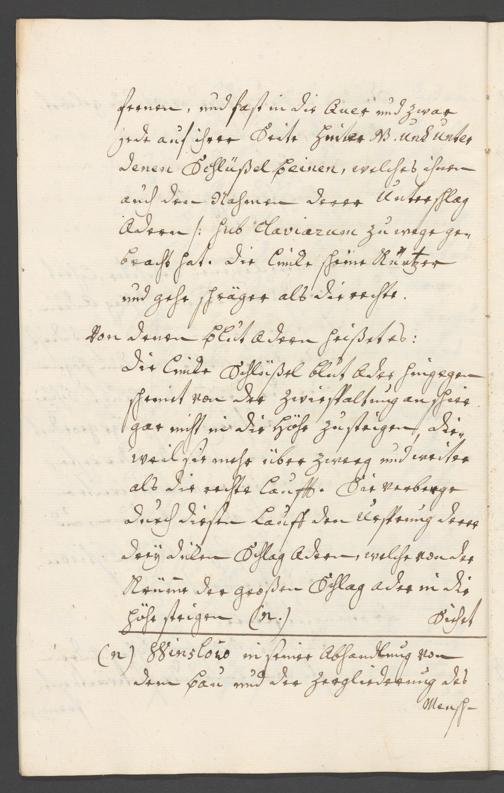 fernen, und fast in die Quer und zwar
jede auf ihrer Seite hinter N. und unter
denen Schlüßel beinen, welches ihnen
auch den Nahmen derer Unterschlag
Adern /: sub Claviarum zu wege ge-
bracht hat. die Linke scheine Kürtzer
und gehe schräger als die rechte.
Von denen blut Adern heißet es:
die Linke Schlüßel blut Ader hingegen
scheinet von der Zwiespaltung an schier
gar nicht in die Höhe zu steigen, die-
weil sie mehr über zwerg und weiter
als die rechte laufft. Sie verberge
durch diesen Lauff den Ursprung derer
drey dicken Schlag Adern, welche von der
Krümme der großen Schlag ader in die
Höhe steigen. (n.)
Siehet
(n) Winslow in seiner Abhandlung von
dem bau und der Zergliederung des
Mensch-